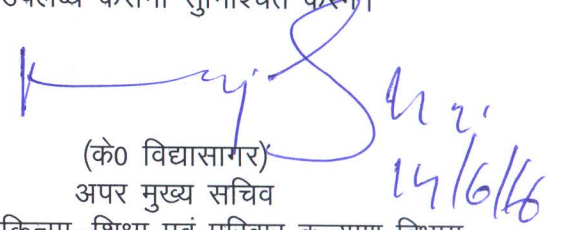 उपलब्ध कराना सुनिश्चित करेंगे।
(के0 विद्यासागर)
अपर मुख्य सचिव
14/6/16
शिक्षा एवं परिवार कल्याण विभाग